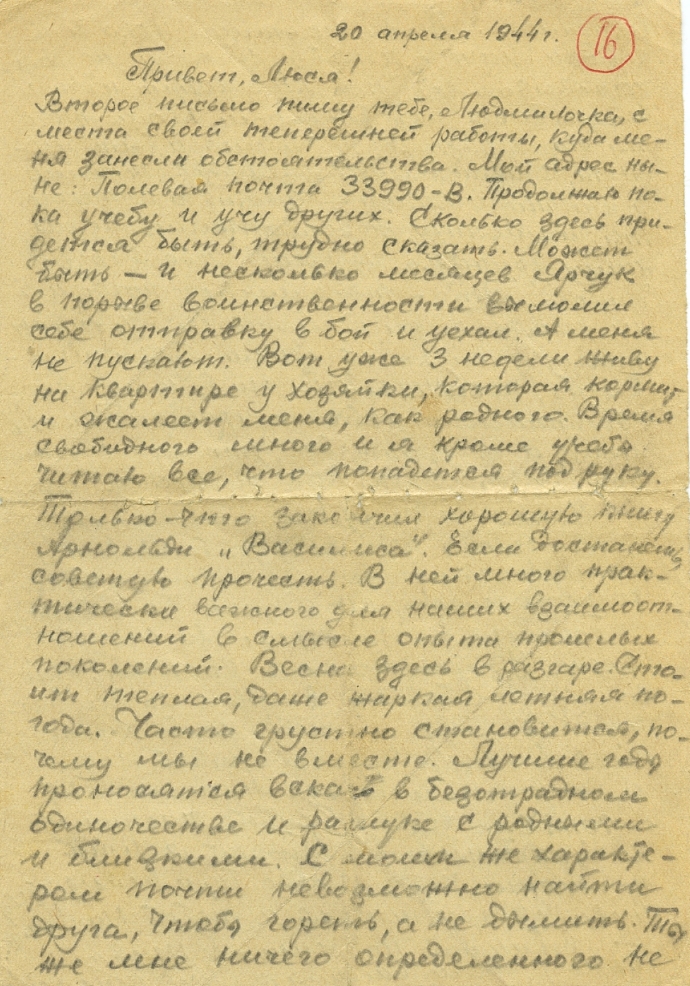 20 апреля 1944г.
16
Привет, Люся!
Второе письмо пишу тебе, Людмилочка, с
места своей теперешней работы, куда ме-
ня занесли обстоятельства. Мой адрес ны-
не: Полевая почта 33990-В. Продолжаю по-
ка учебу и учу других. Сколько здесь при-
дется быть, трудно сказать. Может
быть — и несколько месяцев Ярчук
в порыве воинственности вымолил
себе отправку в бой и уехал. А меня
не пускают. Вот уже 3 недели живу
на квартире у хозяйки, которая кормит
и жалеет меня, как родного. Время
свободного много и я кроме учебы
читаю все, что попадется под руку.
Только-что закончил хорошую книгу
Арнольди „Василиса". Если достанешь,
советую прочесть. В ней много прак-
тически важного для наших взаимоот-
ношений в смысле опыта прошлых
поколений. Весна здесь в разгаре. Сто-
ит теплая, даже жаркая летняя по-
года. Часто грустно становится, по-
чему мы не вместе. Лучшие годы
проносятся вскачь в безотрадном
одиночестве и разлуке с родными
и близкими. С моим же характе-
ром почти невозможно найти
друга, чтобы гореть, а не дымить. Ты
же мне ничего определенного не